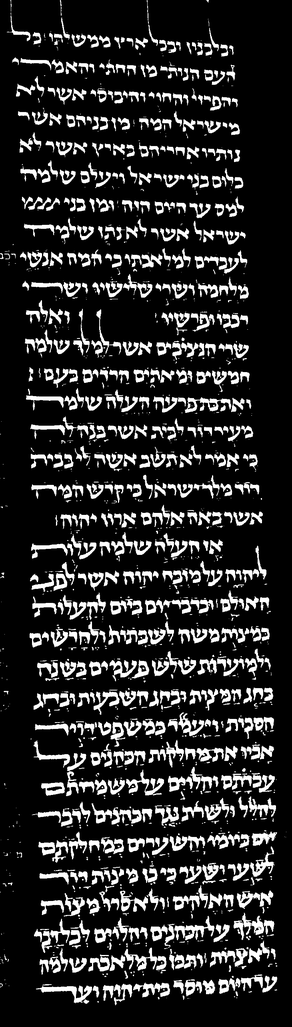 ובלבנון ובכל ארץ ממשלתו כל
העם הנותר מן החתי והאמרי
והפרזי והחוי והיבוסי אשר לא
מישראל המה מן בניהם אשר
נותרו אחריהם בארץ אשר לא
כלום בני ישראל ויעלם שלמה
למס עד היום הזה ומן בני
ישראל אשר לא נתן שלמה
לעבדים למלאכתו כי המה אנשי
מלחמה ושרי שלישיו ושרי
רכבו ופרשיו ואלה
שרי הנציבים אשר למלך שלמה
חמשים ומאתים הרדים בעם
ואת בת פרעה העלה שלמה
מעיר דוד לבית אשר בנה לה
כי אמר לא תשב אשה לי בבית
דויד מלך ישראל כי קדש המה
אשר באה אלהם ארון יהוה
אז העלה שלמה עלות
ליהוה על מזבח יהוה אשר לפני
האולם ובדבר יום ביום להעלות
כמצות משה לשבתות ולחדשים
ולמועדות שלש פעמים בשנה
בחג המצות ובחג השבעות ובחג
הסכות ויעמד כמשפט דויד
אביו את מחלקות הכהנים על
עבדתם והלוים על משמרותם
להלל ולשרת נגד הכהנים לדבר
יום ביומו והשערים במחלקותם
לשער ושער כי כן מצות דויד
איש האלהים ולא סרו מצות
המלך על הכהנים והלוים לכל דבר
ולאצרות ותכן כל מלאכת שלמה
עד היום מוסד בית יהוה ועד